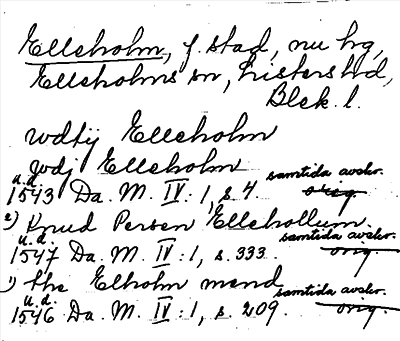 Elleholm, f. stad, nu hg,
Elleholms sn, Listers hd,
Blek. l.
wdtij Elleholm
wdj Elleholm
u.d. samtida avskr.
1543 Da. M. IV: 1, s. 4 orig.
2) Knud Persen Ellehollum
u.d. samtida avskr.
1547 Da. M. IV: 1, s. 333. orig.
1) the Elholm mend
u.d. samtida avskr.
1546 Da. M. IV: 1, s. 209. orig.